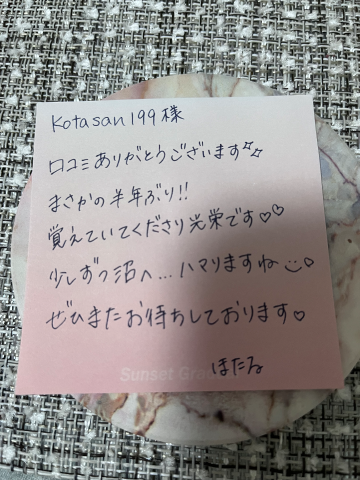 Kotasan199様
口コミありがとうございます✨
まさかの半年ぶり!!
覚えていてくださり光栄です♡♡
少しずつ沼へ...ハマりますね☺♡
ぜひまたお待ちしております♡
ほたる
Sunset Gra